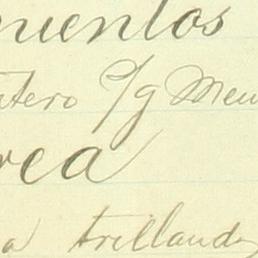 mientos
tero c/g Men
rea
a trillando